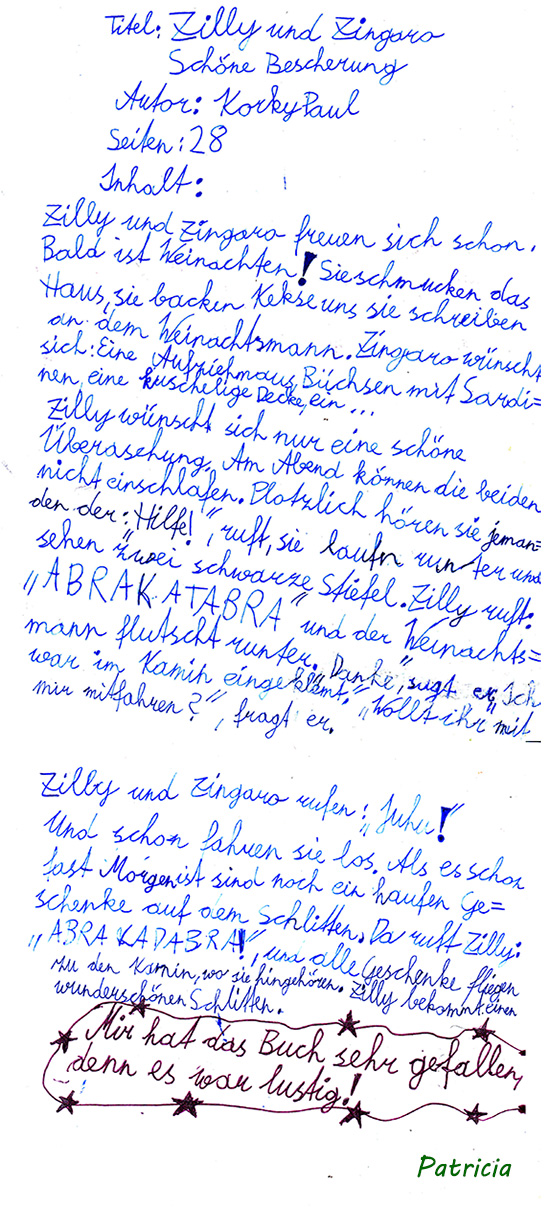 Titel: Zilly und Zingaro
Schöne Bescherung
Autor: Korky Paul
Seiten: 28
Inhalt:
Zilly und Zingaro freuen sich schon.
Bald ist Weinachten! Sie schmucken das
Haus, sie backen Kekse uns sie schreiben
an dem Weinachtsmann. Zingaro wünscht
sich: Eine Aufziehmaus, Büchsen mit Sardi=
nen, eine kuschelige Decke, ein...
Zilly wünscht sich nur eine schöne
Überasehung. Am Abend können die beiden
nicht einschlafen. Plotzlich hören sie jeman=
den der: „Hilfe!", ruft, sie laufn runter und
sehen zwei schwarze Stiefel. Zilly ruft:
„ABRAKATABRA" und der Weinachts=
mann flutscht runter. „Danke", sagt er, „Ich
war im Kamin eingeklemt." „Wollt ihr mit
mir mitfahren?", fragt er.
Zilly und Zingaro rufen: „Juhu!"
Und schon fahren sie los. Als es schon
fast Morgen ist sind noch ein haufen Ge=
schenke auf dem Schlitten. Da ruft Zilly:
„ABRAKADABRA!", und alle Geschenke fliegen
zu den Kamin, wo sie hingehören. Zilly bekommt einen
wunderschönen Schlitten.
Mir hat das Buch sehr gefallen,
denn es war lustig!
Patricia